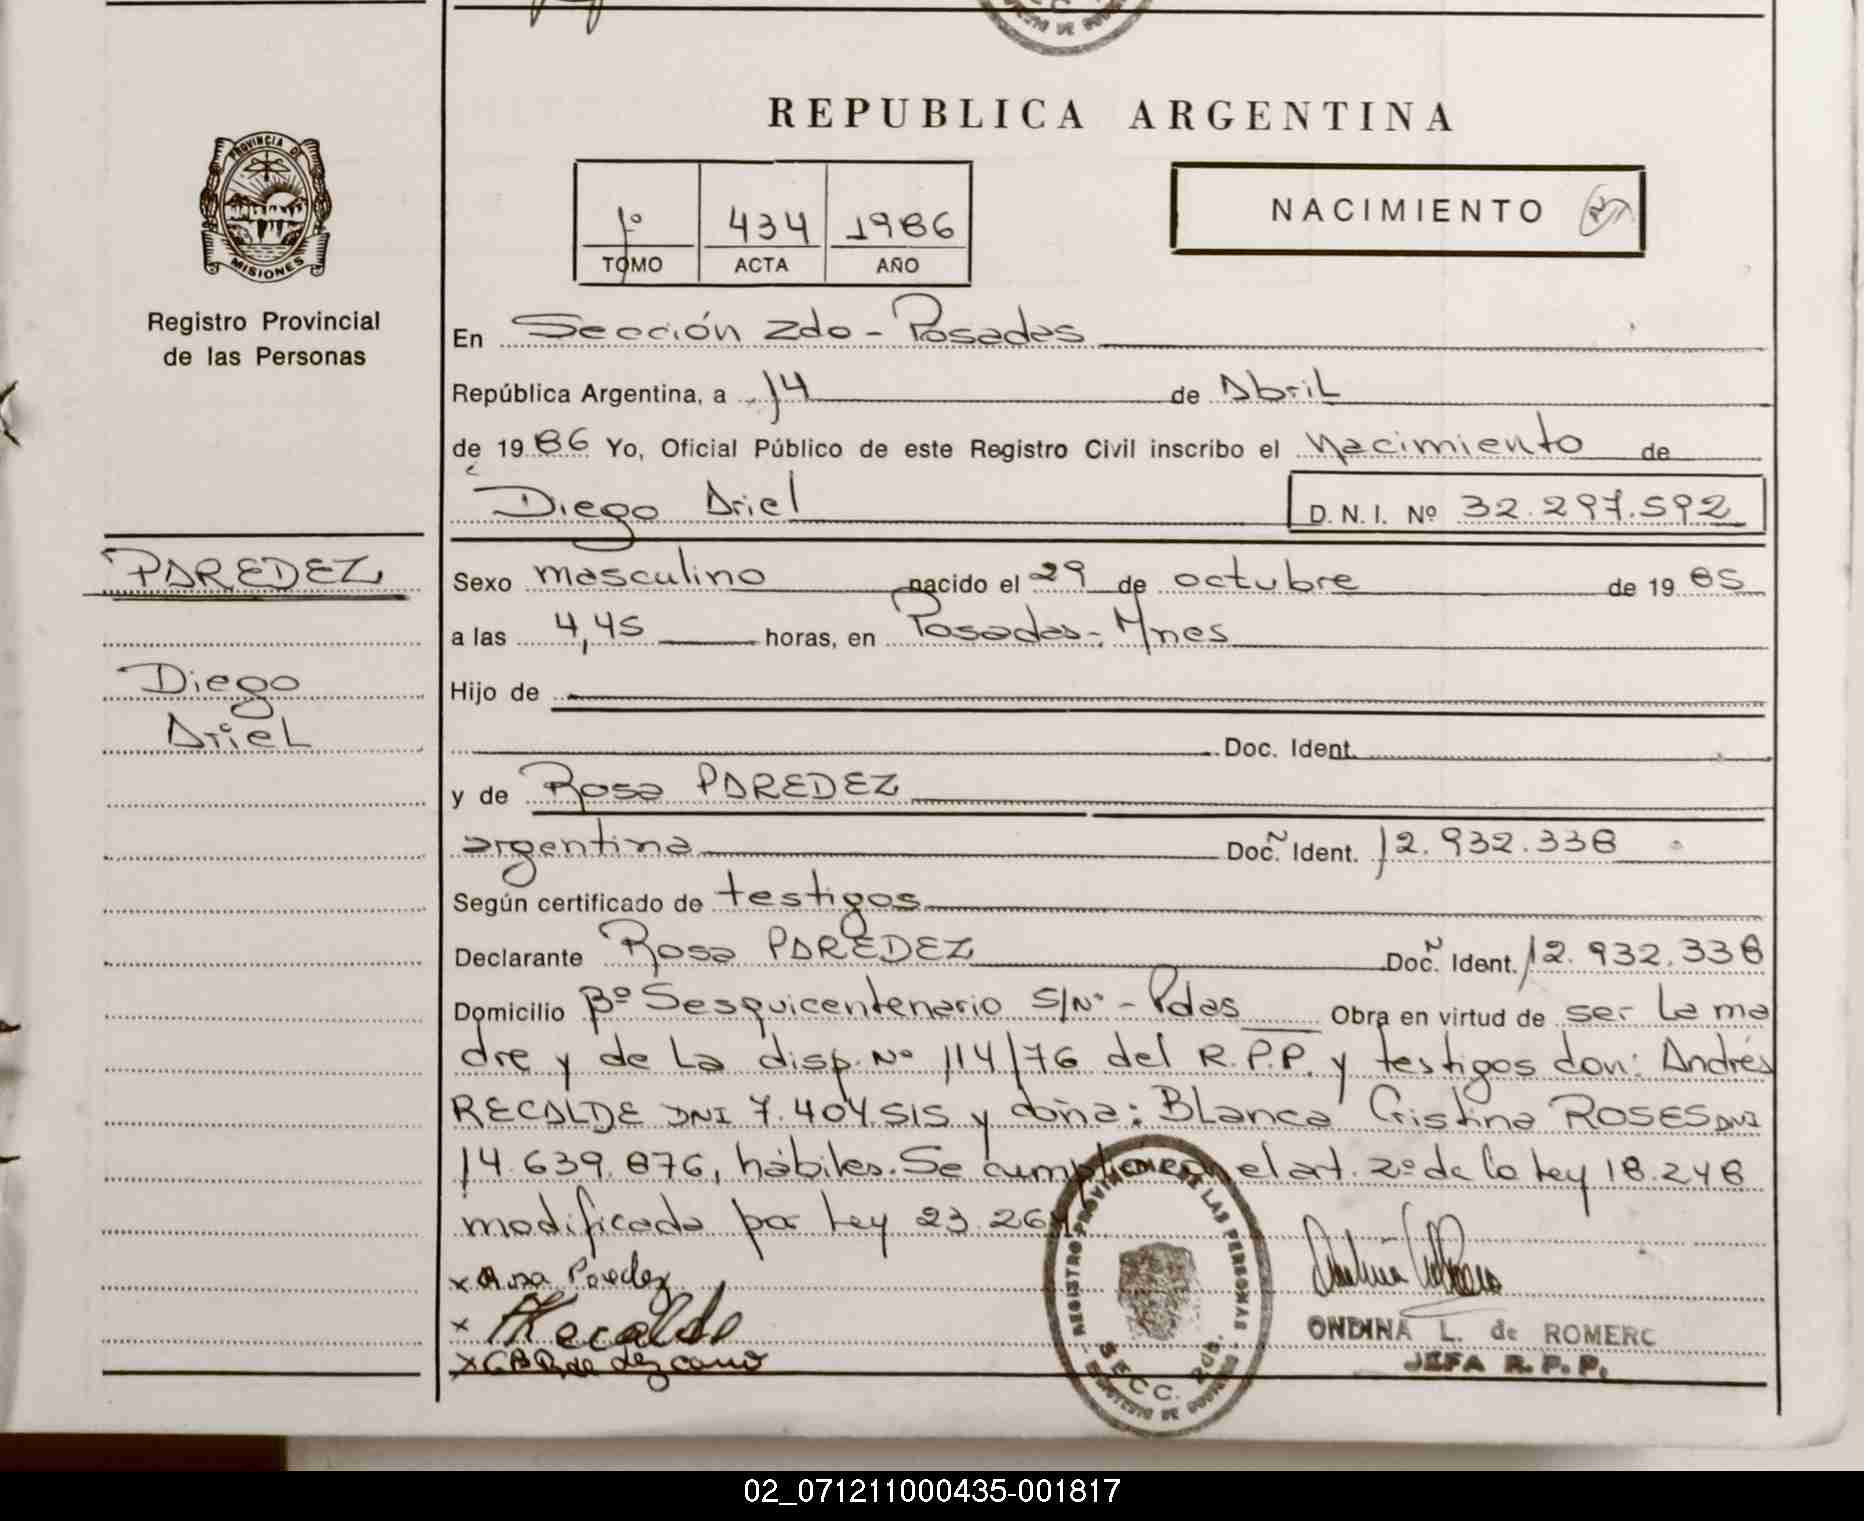 REPUBLICA ARGENTINA
PROVINCIA DE
MISIONES
Registro Provincial
de las Personas
1º 434 1986
TOMO ACTA AÑO
NACIMIENTO
En Sección 2do - Posadas
República Argentina, a 14 de Abril
de 1986 Yo, Oficial Público de este Registro Civil inscribo el Nacimiento de
Diego Ariel D. N. I. Nº 32.297.592
PAREDEZ
Diego
Ariel
Sexo masculino nacido el 29 de octubre de 1985
a las 4,45 horas, en Posadas - Mnes
Hijo de
Doc. Ident.
y de Rosa PAREDEZ
argentina Doc. Ident. 12.932.338
Según certificado de testigos
Declarante Rosa PAREDEZ Doc. Ident. 12.932.338
Domicilio Bº Sesquicentenario S/Nº - Pdas Obra en virtud de ser La ma
dre y de La disp. Nº 114/76 del R.P.P. y testigos don: Andrés
RECALDE DNI 7.404.515 y doña: Blanca Cristina ROSES DNI
14.639.876, hábiles. Se cumplimenta el art. 2º de la Ley 18.248
modificada por Ley 23.264
x Rosa Paredez
x ARecalde
x
REGISTRO PROVINCIAL DE LAS PERSONAS
SECC. 2da.
ONDINA L. de ROMERO
JEFA R. P. P.
02_071211000435-001817